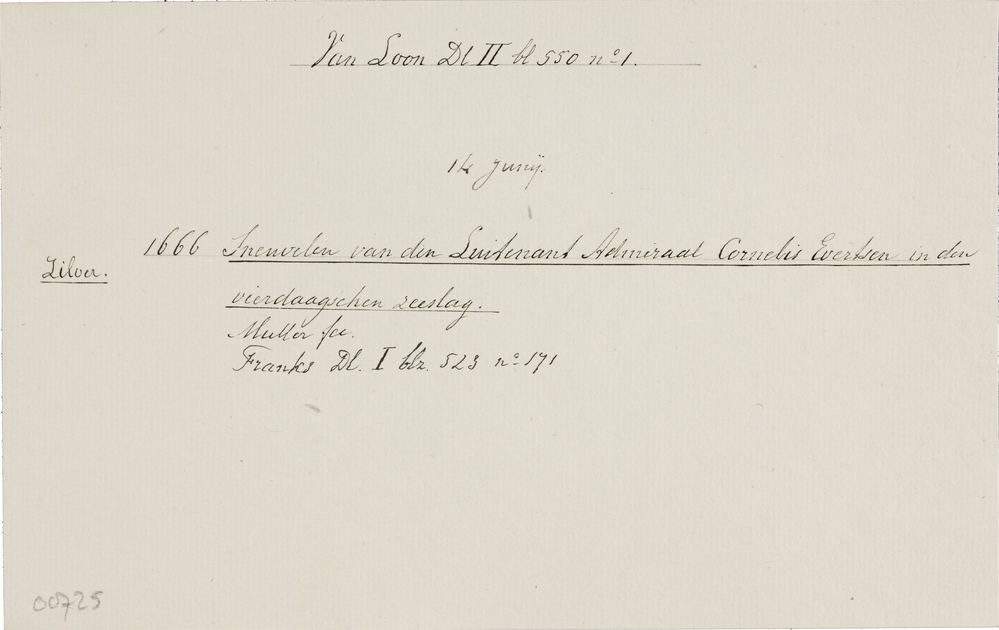 Van Loon Dl II bl 550 nº 1.
14 Junij.
1666 Sneuvelen van den Luitenant Admiraal Cornelis Evertsen in den
Zilver.
vierdaagschen zeeslag.
Muller fec.
Franks Dl. I blz. 523 nº 171
00725